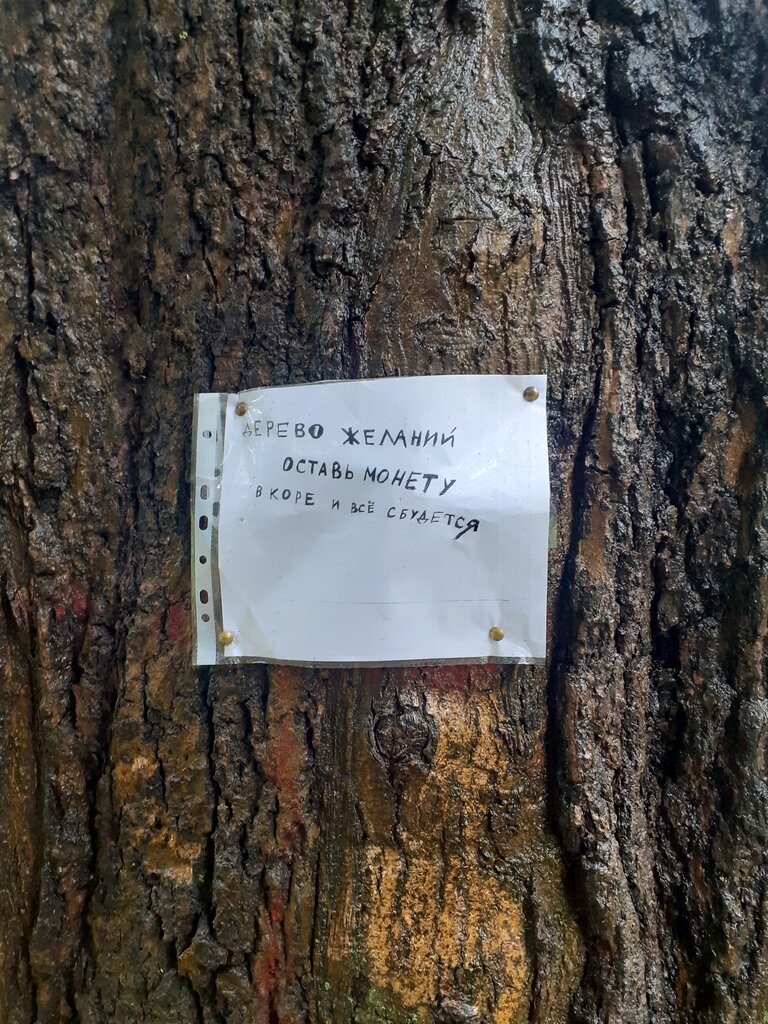 ДЕРЕВО ЖЕЛАНИЙ
ОСТАВЬ МОНЕТУ
В КОРЕ И ВСЁ СБУДЕТСЯ